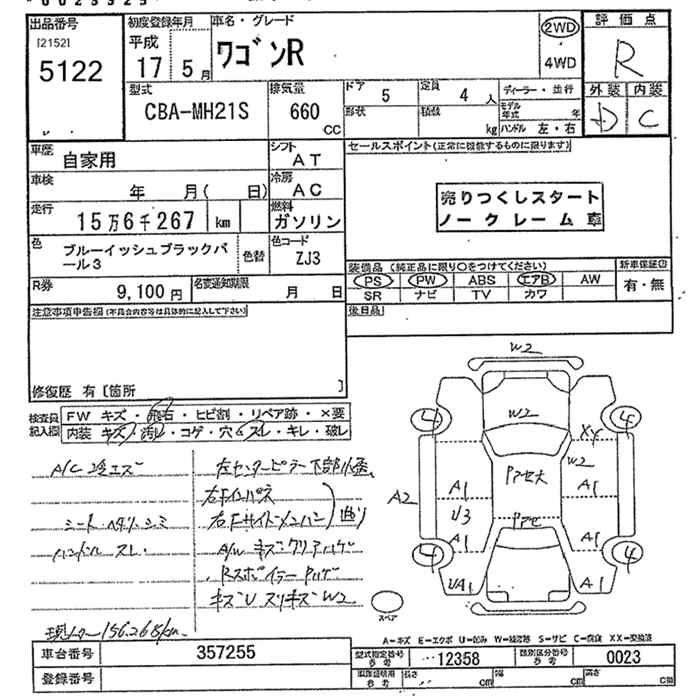 出品番号
[2152]
5122
初度登録年月
平成
17 5月
車名・グレード
ワゴンR
2WD
4WD
評価点
R
外装 内装
D C
型式
CBA-MH21S
排気量
660
CC
ドア
5
定員
4 人
形状
積載
kg
ディーラー・並行
モデル年式 年
ハンドル 左・右
車歴
自家用
シフト
AT
車検
年 月( 日)
冷房
AC
走行
15万6千267 km
燃料
ガソリン
色
ブルーイッシュブラックパール3
色替
色コード
ZJ3
R券
9,100円
名変通知期限
月 日
セールスポイント(正常に機能するものに限ります)
売りつくしスタート
ノークレーム車
装備品(純正品に限り○をつけてください)
新車保証書
PS PW ABS エアB AW
SR ナビ TV カワ
有・無
後日品
注意事項申告欄(不具合内容等は具体的に記入して下さい)
修復歴 有〔箇所 〕
検査員記入欄
FW キズ・飛石・ヒビ割・リペア跡・×要
内装 キズ・汚レ・コゲ・穴・スレ・キレ・破レ
A/C 冷エズ
シート ヘタリ シミ
ハンドル スレ
左センターピラー下部
右Fインパネ
右Fサイドメンバー
A/W キズ クリアハゲ
Rスポイラー Pハゲ
キズU スリキズ W2
現メーター156,268km
W2
W2
XY
W2
Pアセ大
Pアセ
A2
A1
U3
A1
UA1
A1
A1
A1
4
4
4
4
スペア
A－キズ E－エクボ U－凹み W－補修跡 S－サビ C－腐食 XX－交換済
車台番号 357255
登録番号
型式指定番号 参考 12358
類別区分番号 参考 0023
参考
長さ cm
幅 cm
高さ cm